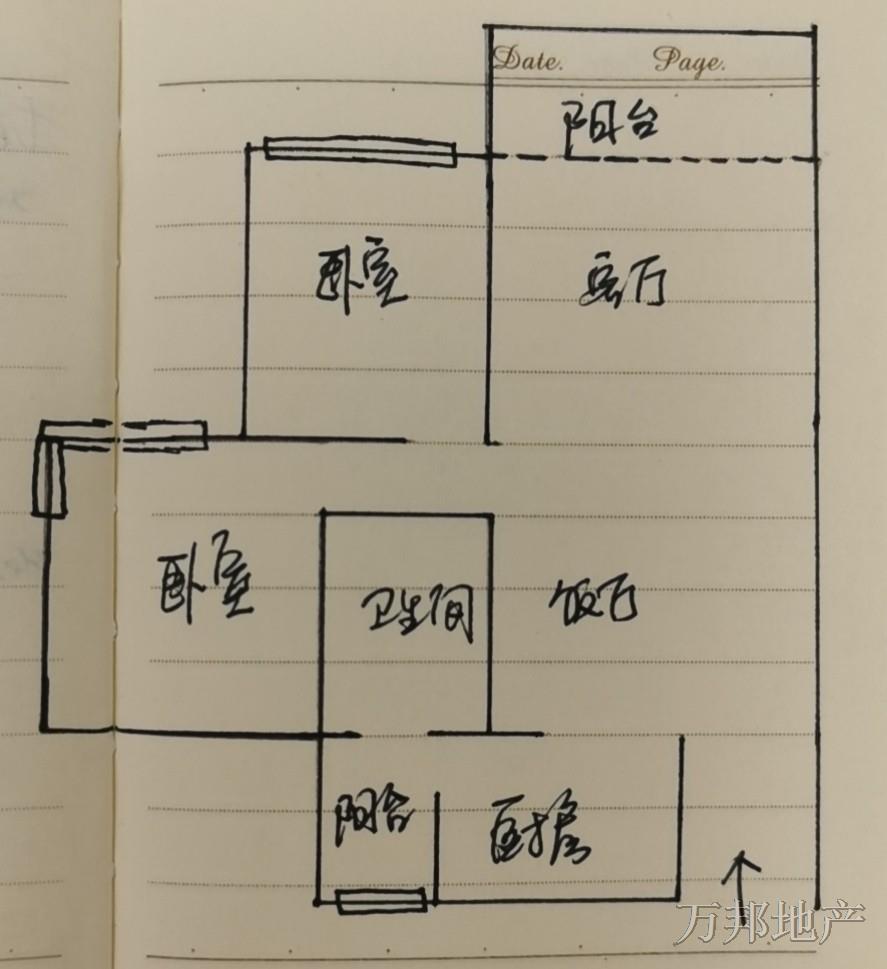 Date. Page.
阳台
卧室 客厅
卧室 卫生间 饭厅
阳台
万邦地产